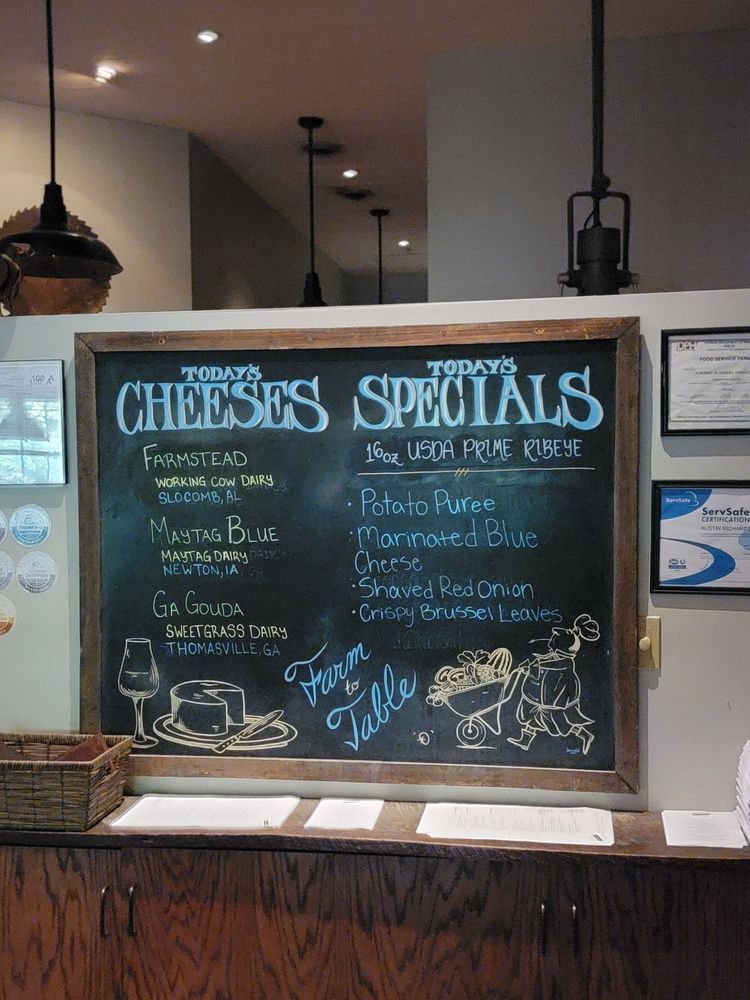 TODAY'S
CHEESES
FARMSTEAD
WORKING COW DAIRY
SLOCOMB, AL
MAYTAG BLUE
MAYTAG DAIRY
NEWTON, IA
GA GOUDA
SWEETGRASS DAIRY
THOMASVILLE, GA
TODAY'S
SPECIALS
16oz USDA PRIME RIBEYE
• Potato Puree
• Marinated Blue
Cheese
• Shaved Red Onion
• Crispy Brussel Leaves
Farm
to
Table
DPH
FOOD SERVICE
ServSafe
ServSafe
CERTIFICATION